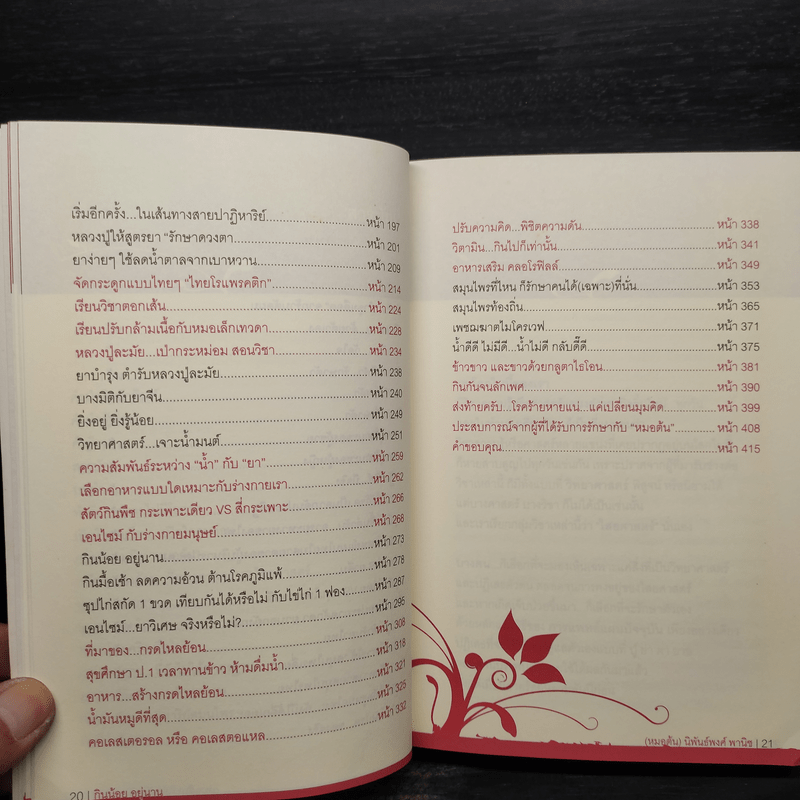 เริ่มอีกครั้ง...ในเส้นทางสายปาฏิหาริย์........................หน้า 197
หลวงปู่ให้สูตรยา "รักษาดวงตา........................หน้า 201
ยาง่ายๆ ใช้ลดน้ำตาลจากเบาหวาน........................หน้า 209
จัดกระดูกแบบไทยๆ "ไทยโรแพรคติก"........................หน้า 214
เรียนวิชาตอกเส้น........................หน้า 224
เรียนปรับกล้ามเนื้อกับหมอเล็กเทวดา........................หน้า 228
หลวงปู่ละมัย...เป่ากระหม่อม สอนวิชา........................หน้า 234
ยาบำรุง ตำรับหลวงปู่ละมัย........................หน้า 238
บางมิติกับยาจีน........................หน้า 240
ยิ่งอยู่ ยิ่งรู้น้อย........................หน้า 249
วิทยาศาสตร์...เจาะน้ำมนต์........................หน้า 251
ความสัมพันธ์ระหว่าง "น้ำ" กับ "ยา"........................หน้า 259
เลือกอาหารแบบใดเหมาะกับร่างกายเรา........................หน้า 262
สัตว์กินพืช กระเพาะเดียว VS สี่กระเพาะ........................หน้า 266
เอนไซม์ กับร่างกายมนุษย์........................หน้า 268
กินน้อย อยู่นาน........................หน้า 273
กินมื้อเช้า ลดความอ้วน ต้านโรคภูมิแพ้........................หน้า 278
ซุปไก่สกัด 1 ขวด เทียบกันได้หรือไม่ กับไข่ไก่ 1 ฟอง........................หน้า 287
เอนไซม์...ยาวิเศษ จริงหรือไม่?........................หน้า 295
ที่มาของ...กรดไหลย้อน........................หน้า 308
สุขศึกษา ป.1 เวลาทานข้าว ห้ามดื่มน้ำ........................หน้า 318
อาหาร...สร้างกรดไหลย้อน........................หน้า 321
น้ำมันหมูดีที่สุด........................หน้า 325
คอเลสเตอรอล หรือ คอเลสตอแหล........................หน้า 332
20 | กินน้อย อยู่นาน
ปรับความคิด...พิชิตความดัน........................หน้า 338
วิตามิน...กินไปก็เท่านั้น........................หน้า 341
อาหารเสริม คลอโรฟิลล์........................หน้า 349
สมุนไพรที่ไหน ก็รักษาคนได้(เฉพาะ)ที่นั่น........................หน้า 353
สมุนไพรท้องถิ่น........................หน้า 365
เพชฌฆาตไมโครเวฟ........................หน้า 371
น้ำดีดี ไม่มีดี...น้ำไม่ดี กลับดี๊ดี........................หน้า 375
ข้าวขาว และขาวด้วยกลูตาไธโอน........................หน้า 381
กินกันจนลักเพศ........................หน้า 390
ส่งท้ายครับ...โรคร้ายหายแน่...แค่เปลี่ยนมุมคิด........................หน้า 399
ประสบการณ์จากผู้ที่ได้รับการรักษากับ "หมอต้น"........................หน้า 408
คำขอบคุณ........................หน้า 415
(หมอต้น) นิพันธ์พงศ์ พานิช | 21